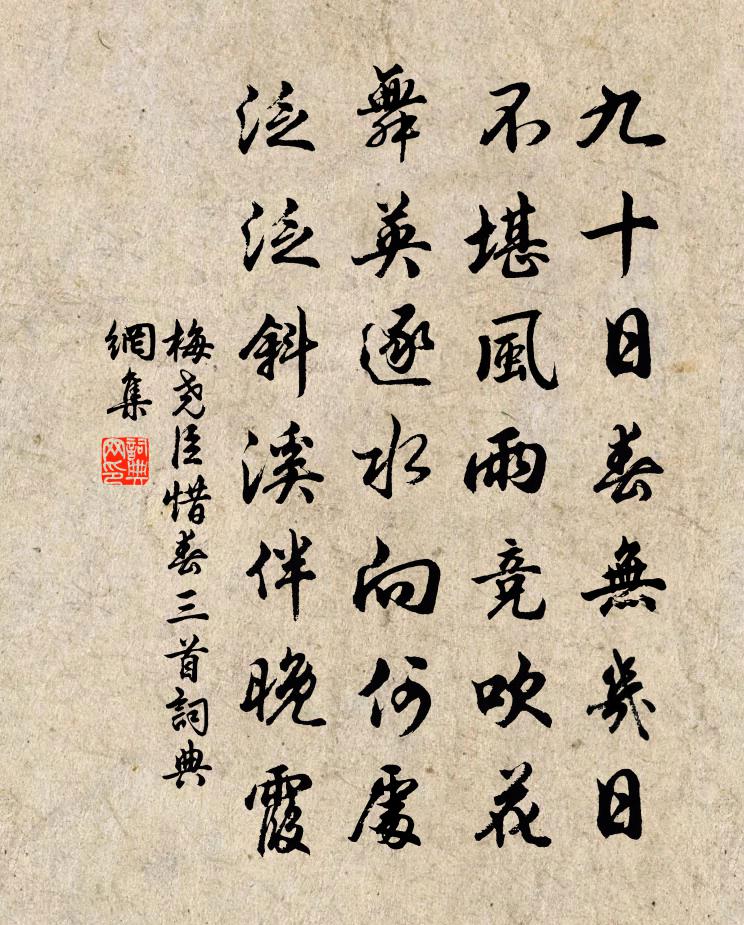 九十日春無幾日
不堪風雨競吹花
舞英逐水向何處
泛泛斜溪伴晚霞
梅堯臣惜春三首詞典
網集
詞典
网印